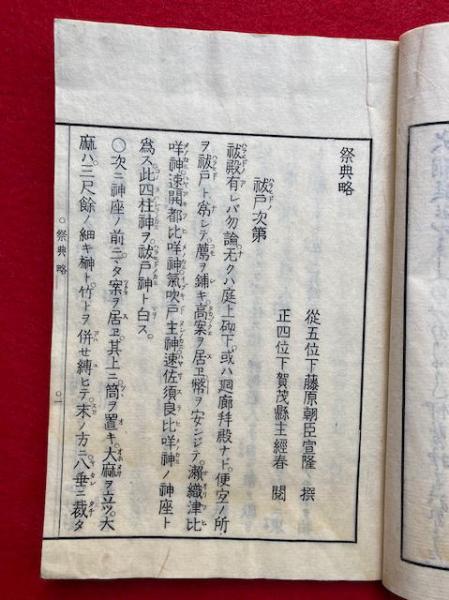 祭典略
從五位下藤原朝臣宣隆 撰
正四位下賀茂縣主經春 閲
祓戸次第
祓殿有レバ勿論无クハ庭上砌下或ハ廻廊拜殿ナド便空ノ所
ヲ祓戸ト爲シテ薦ヲ鋪キ高案ヲ居ヱ幣ヲ安ンジテ瀬織津比
咩神速開都比咩神氣吹戸主神速佐須良比咩神ノ神座ト
爲ス此四柱神ヲ祓戸神ト白ス。
〇次ニ神座ノ前ニ又案ヲ居ヱ其上ニ筒ヲ置キ大麻ヲ立ツ大
麻ハ三尺餘ノ細キ榊ト竹トヲ併せ縛ヒテ末ノ方ニ八垂ニ裁タ
〇祭典略 〇一